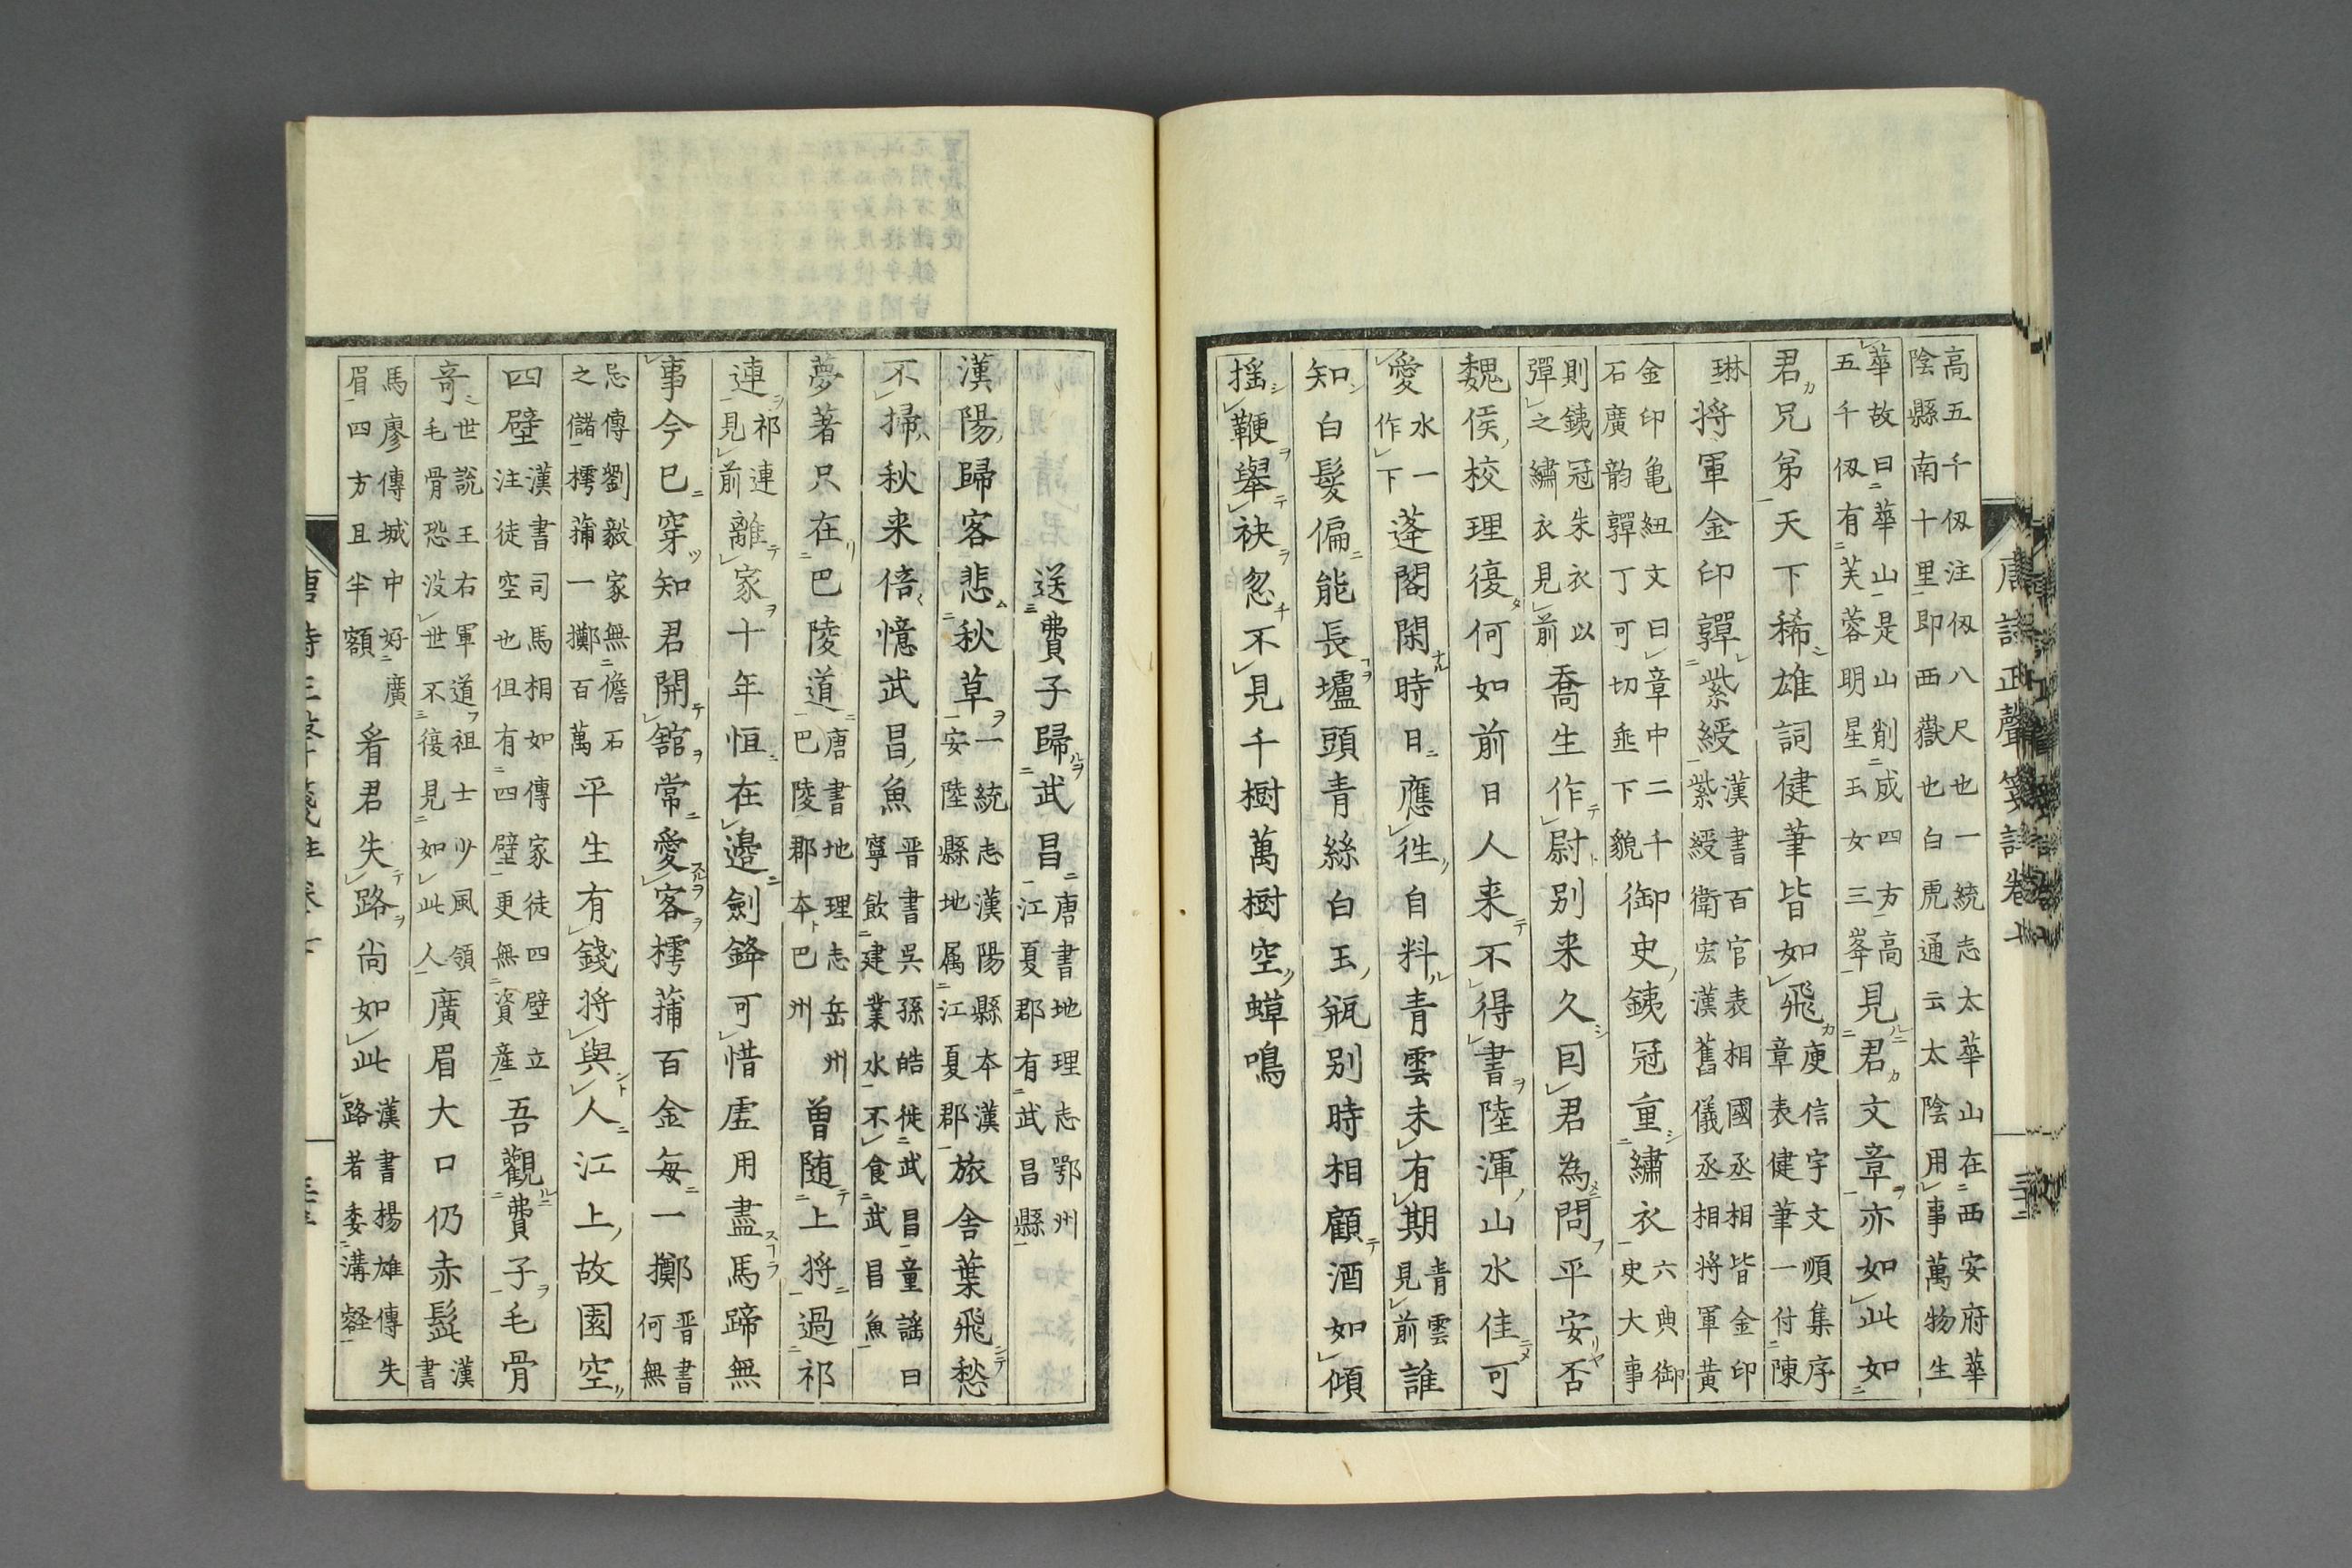 高五千仭注仭八尺也一統志太華山在西安府華
陰縣南十里即西嶽也白虎通云太陰用事萬物生
華故曰華山是山削成四方高
五千仭有芙蓉明星玉女三峯見君文章亦如此如
君兄弟天下稀雄詞健筆皆如飛庾信宇文順集序
章表健筆一付陳
琳将軍金印嚲紫綬漢書百官表相國丞相皆金印
紫綬衛宏漢舊儀丞相将軍黄
金印亀紐文曰章中二千
石廣韵嚲丁可切埀下貌御史鉄冠重繡衣六典御
史大事
則鉄冠朱衣以
彈之繡衣見前喬生作尉别来久囙君為問平安否
魏侯校理復何如前日人来不得書陸渾山水佳可
愛水一
作下蓬閣閑時日應徃自料青雲未有期青雲
見前誰
知白髮偏能長壚頭青絲白玉瓶别時相顧酒如傾
揺鞭舉袂忽不見千樹萬樹空蟬鳴
唐詩正聲箋註卷七
送費子歸武昌唐書地理志鄂州
江夏郡有武昌縣
漢陽歸客悲秋草一統志漢陽縣本漢
安陸縣地属江夏郡旅舎葉飛愁
不掃秋来倍憶武昌魚晋書吳孫皓徙武昌童謡曰
寧飲建業水不食武昌魚
夢著只在巴陵道唐書地理志岳州
巴陵郡夲巴州曽随上将過祁
連祁連
見前離家十年恒在邉劍鋒可惜虗用盡馬蹄無
事今已穿知君開舘常愛客樗蒱百金每一擲晋書
何無
忌傳劉毅家無儋石
之儲樗蒱一擲百萬平生有錢将與人江上故園空
四壁漢書司馬相如傳家徒四壁立
注徒空也但有四壁更無資産吾觀費子毛骨
竒世說王右軍道祖士少風領
毛骨恐没世不復見如此人廣眉大口仍赤髭漢
書
馬廖傳城中好廣
眉四方且半額㸔君失路尚如此漢書楊雄傳失
路者委溝壑